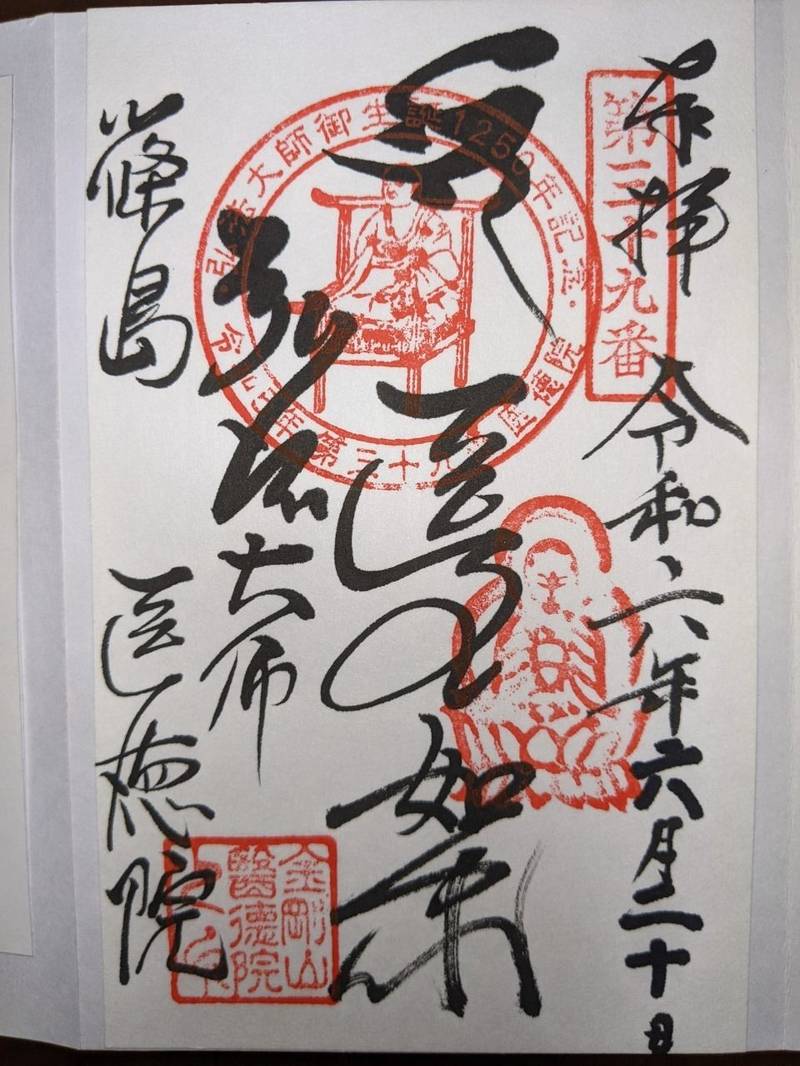 第三十九番
奉拝
令和六年六月二十日
弘法大師御生誕1250年記念
第三十九 医徳院
如来
弘法大師
篠島
医徳院
金剛山
醫德院